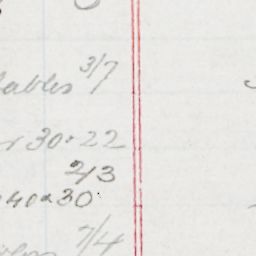 ables 3/7
r 30 × 22
2/3
40 × 30
7/4